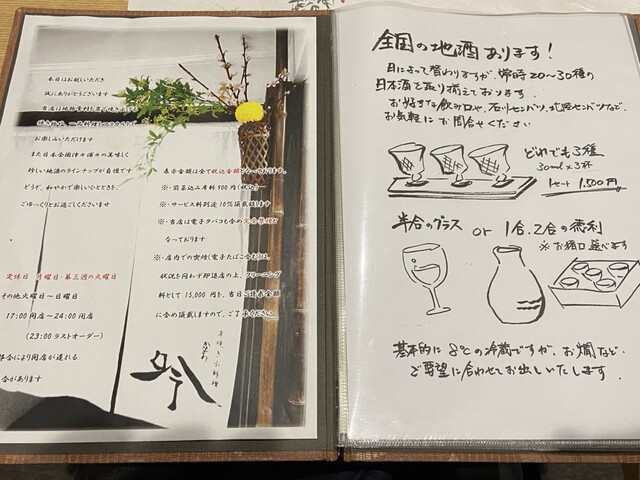 本日はお越しいただき
誠にありがとうございます
お楽しみいただけます
また日本全国津々浦々の美味しく
珍しい地酒のラインナップが自慢です
どうぞ、和やかで楽しいひとときを、
ごゆっくりとお過ごしくださいませ
定休日 月曜日・第三週の火曜日
その他火曜日～日曜日
17:00開店～24:00閉店
(23:00ラストオーダー)
都合により閉店が遅れる
合があります
表示金額は全て税込金額となっております。
※・前菜込み席料900円(税込)
※・サービス料別途10%頂戴致します
※・当店は電子タバコも含め完全禁煙と
なっております
※・店内での喫煙(電子たばこ含む)は、
状況を問わず即退店の上、クリーニング
料として15,000円を、当日ご飲食金額
に含め頂戴致しますので、ご了承ください。
吟
全国の地酒あります!
日によって替わりますが、常時20～30種の
日本酒を取り揃えております。
お好きな飲み口や、石川センバツ、北陸センバツなど、
お気軽にお問合せください
どれでも3種
30ml×3杯
1セット 1,500円
半合のグラス or 1合、2合の徳利
※お猪口選べます
基本的に8℃の冷蔵ですが、お燗など、
ご要望に合わせてお出しいたします。